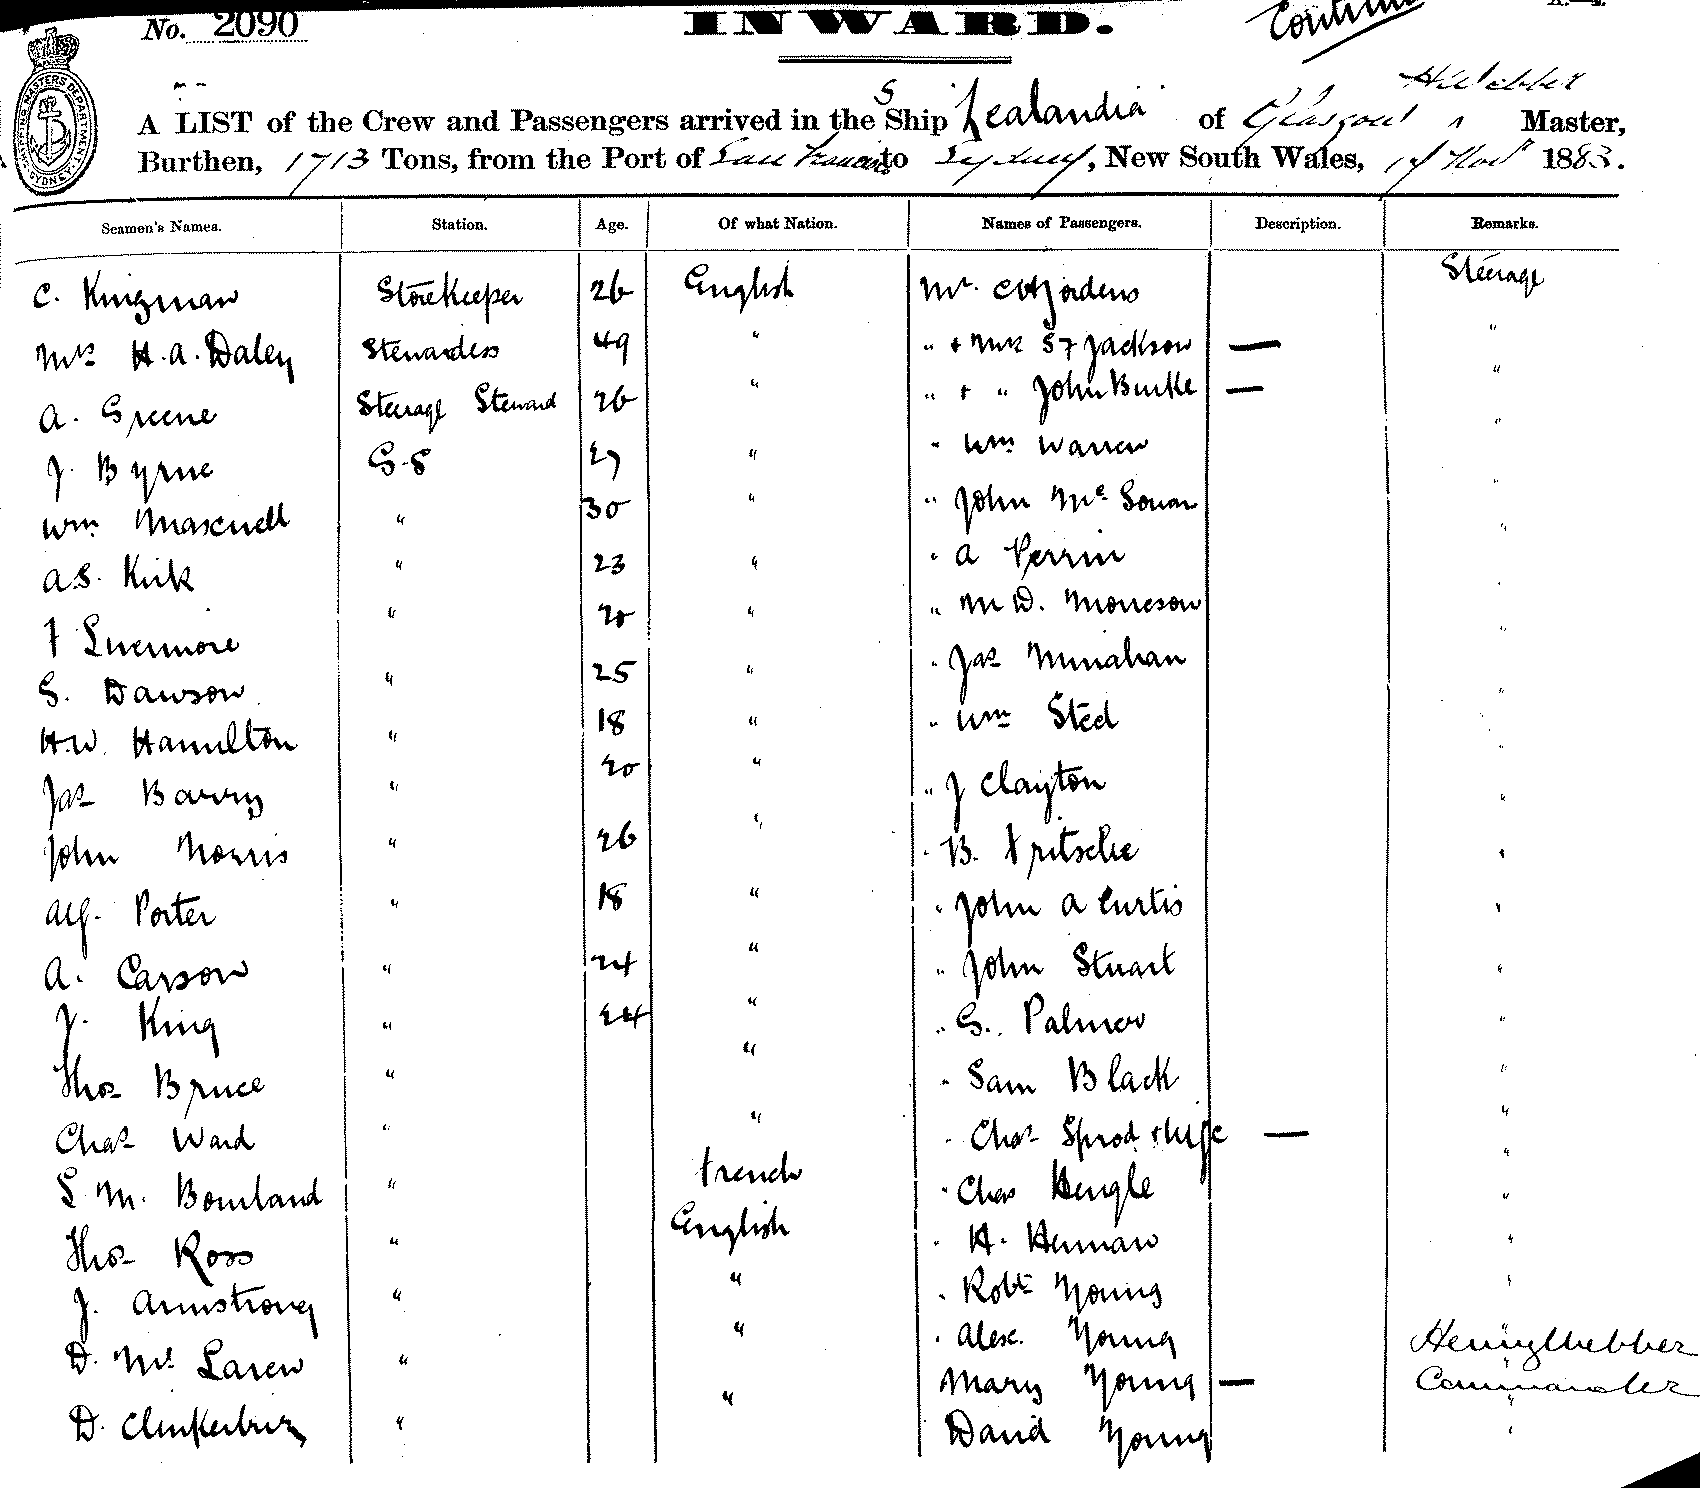 No. 2090
INWARD.
A LIST of the Crew and Passengers arrived in the S Ship Zealandia of Glasgow, H Webber Master,
Burthen, 1713 Tons, from the Port of San Francisco to Sydney, New South Wales, Nov 1883.
Seamen's Names. Station. Age. Of what Nation. Names of Passengers. Description. Remarks.
C. Kingman Storekeeper 26 English Mr. Jordens Steerage
Mrs H. A. Daley Stewardess 49 " " + Mrs S F Jackson — "
A. Greene Steerage Steward 26 " " + " John Burke — "
J. Byrne G.S 27 " " Wm Warren "
Wm Maxwell " 30 " " John Mc "
A S. Kirk " 23 " " A Perrin "
F Livermore " 20 " " M D. Morrison "
G. Dawson " 25 " " Jas Minahan "
H W. Hamilton " 18 " " Wm Steel "
Jas Barry " 20 " " J Clayton "
John Norris " 26 " " B. Fritsche "
Alf. Porter " 18 " " John A Curtis "
A. Carson " 24 " " John Stuart "
J. King " 24 " " G. Palmer "
Thos Bruce " " " Sam Black "
Chas Ward " " " Chas Sprod + wife — "
S. M. Bourland " French " Chas Hengle "
Thos Ross " English " H. Herman "
J. Armstrong " " " Robt Young "
D. Mc Laren " " " Alex. Young " Henry Webber
D. " " Mary Young — " Commander
David Young "